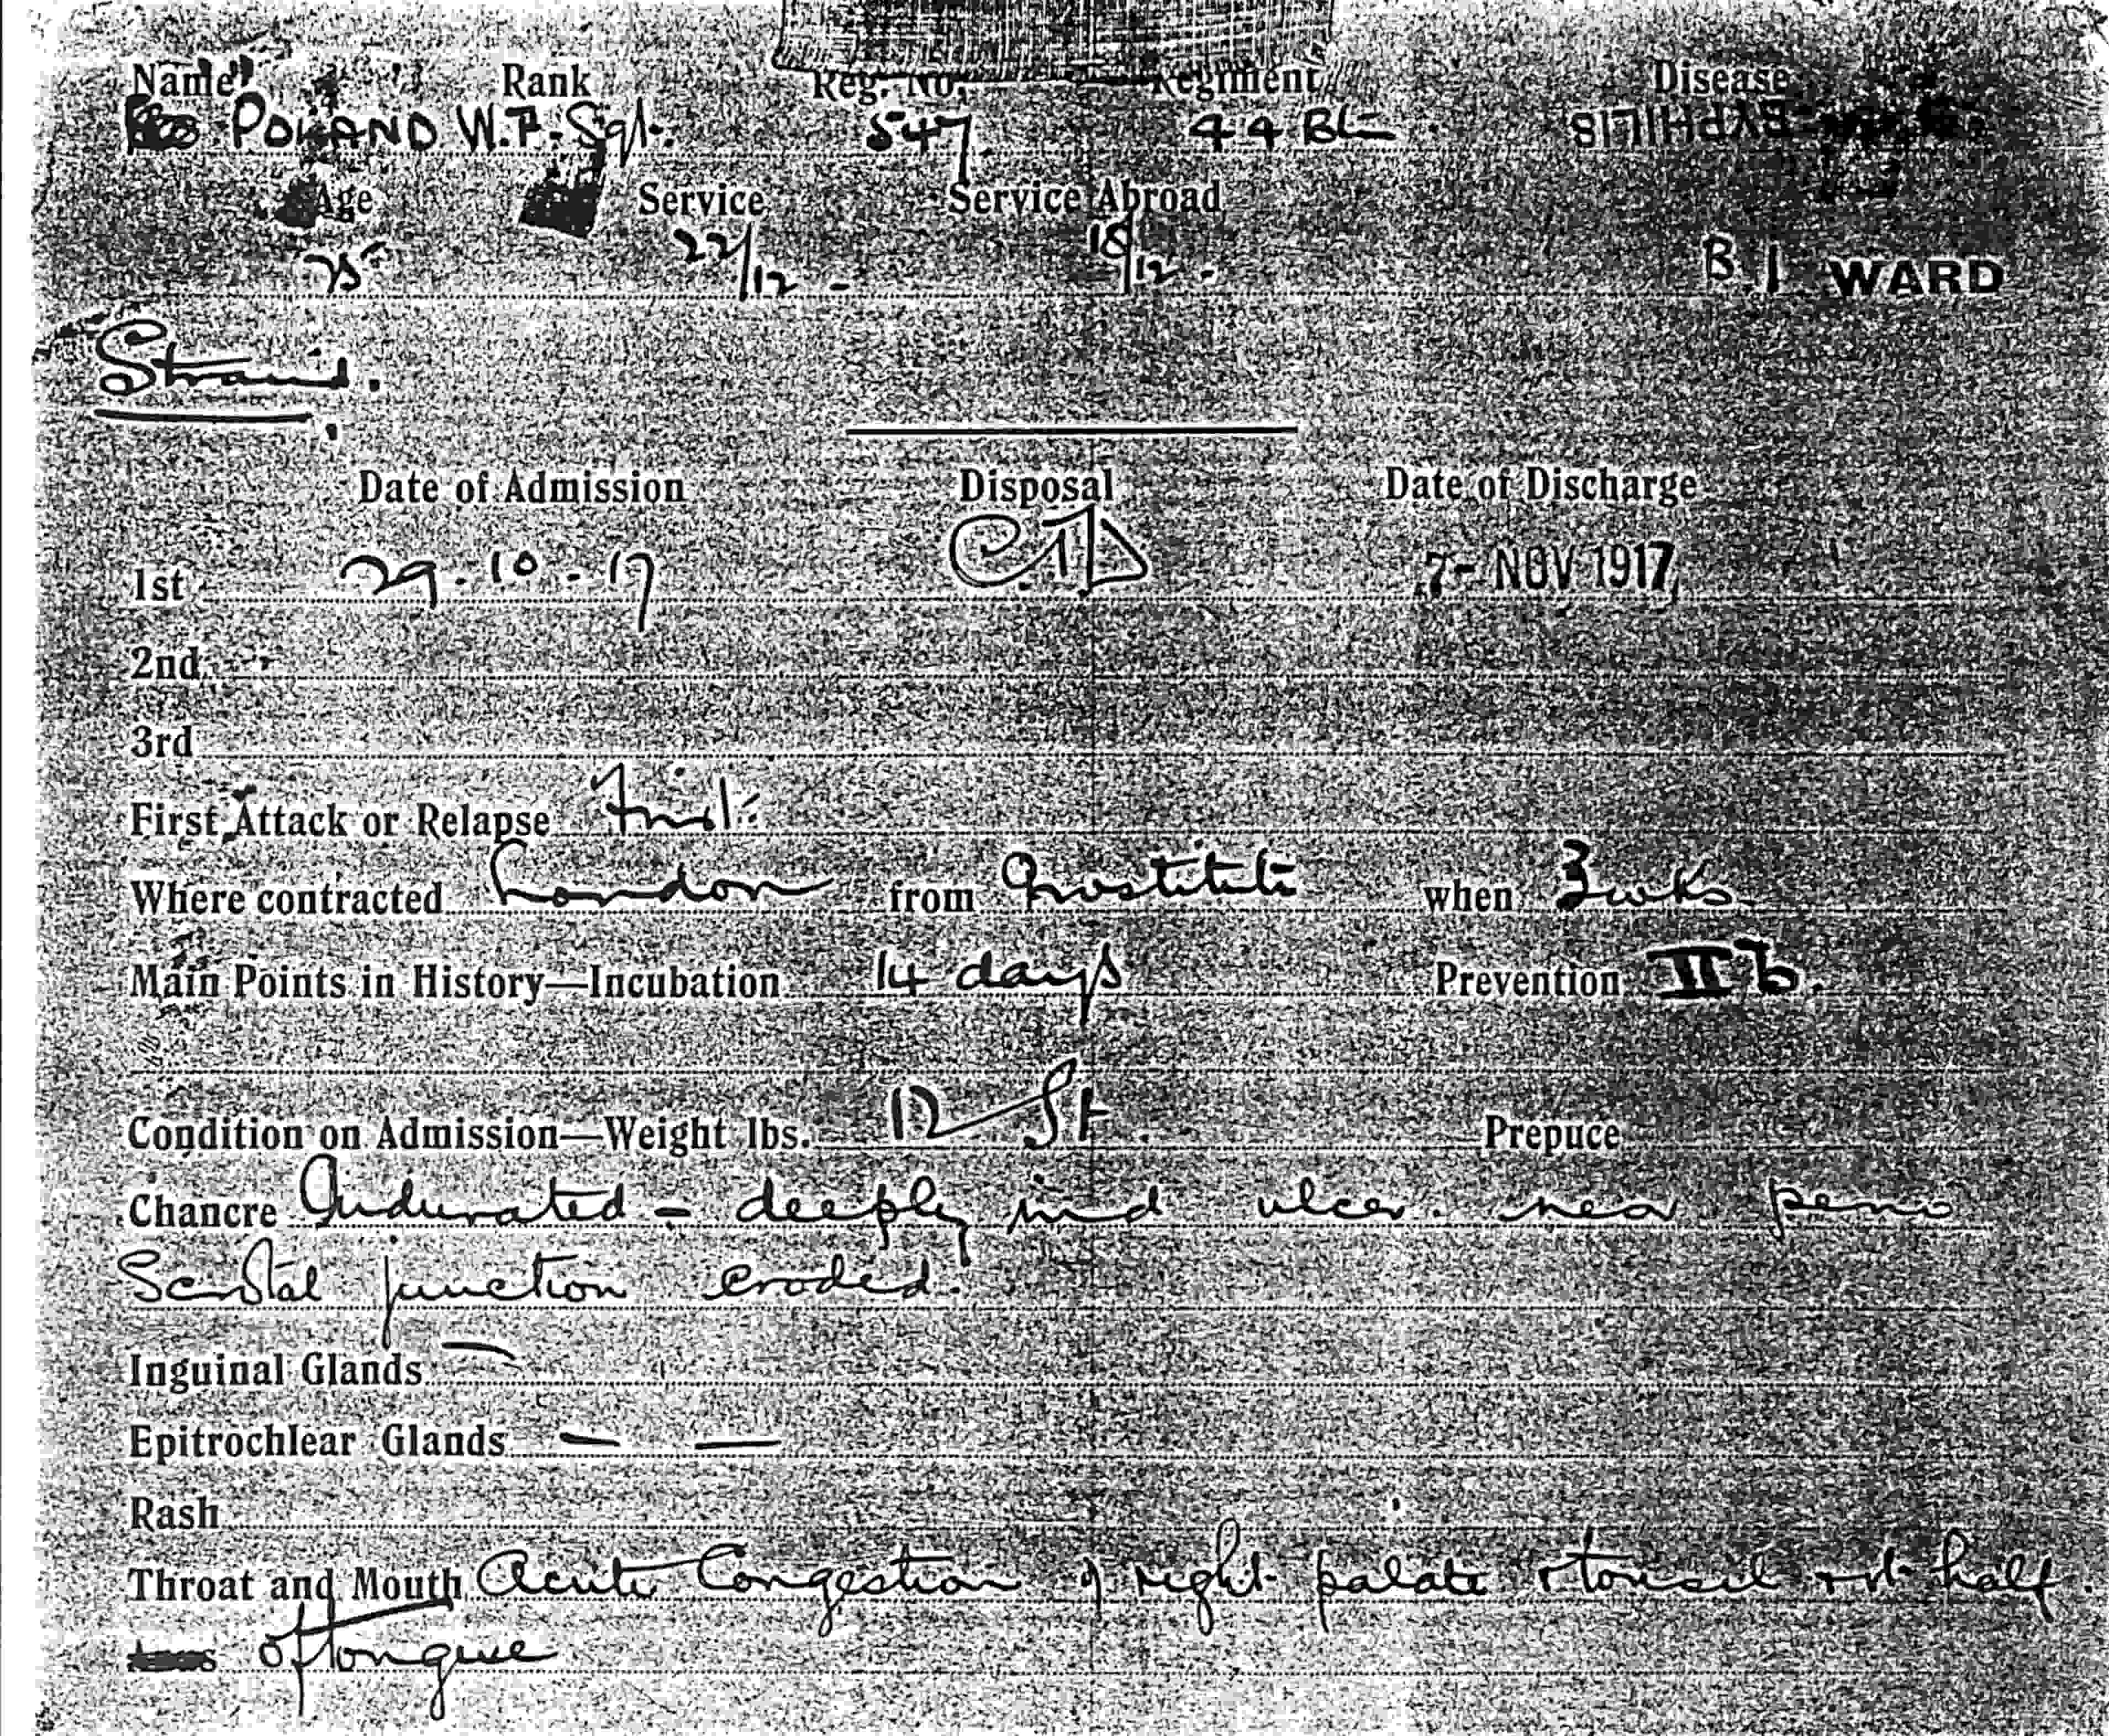 Name Rank Reg. No. Regiment Disease
POLAND W.F. Sgt. 547 44 Bn SYPHILIS
Age Service Service Abroad
25 22/12 - 18/12 - B 1 WARD
Strand.
Date of Admission Disposal Date of Discharge
1st 29.10.17 CTD 7- NOV 1917
2nd
3rd
First Attack or Relapse First
Where contracted London from Prostitute when 3 wks
Main Points in History—Incubation 14 days Prevention II b.
Condition on Admission—Weight lbs. 12 St. Prepuce
Chancre Indurated - deeply ind ulcer near peno
Scrotal junction eroded.
Inguinal Glands —
Epitrochlear Glands — —
Rash
Throat and Mouth Acute Congestion of right palate & tonsil & rt half
of tongue